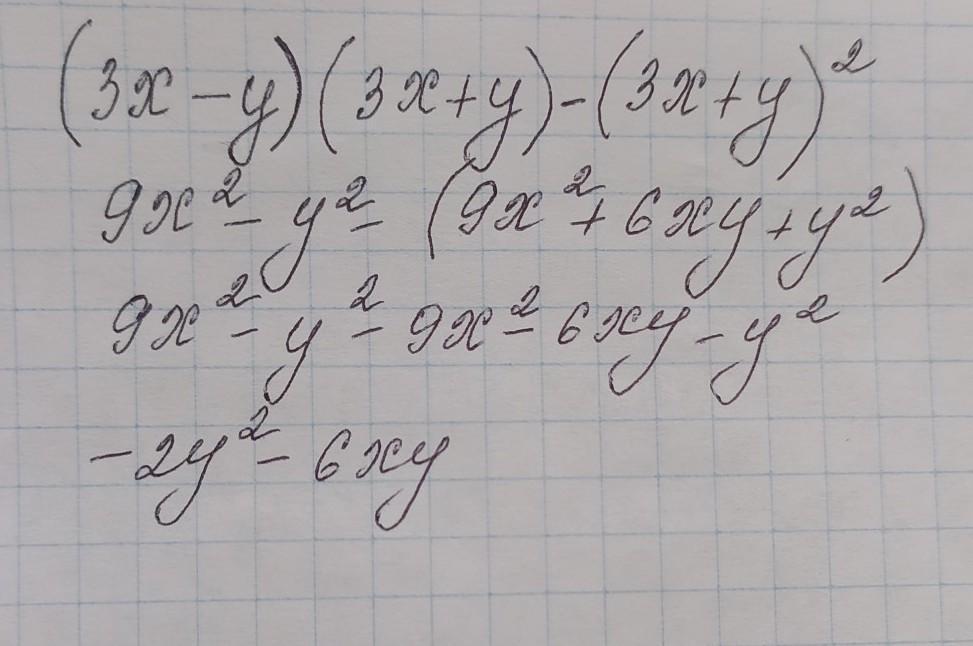 (3x - y)(3x + y) - (3x + y)²
9x² - y² - (9x² + 6xy + y²)
9x² - y² - 9x² - 6xy - y²
-2y² - 6xy